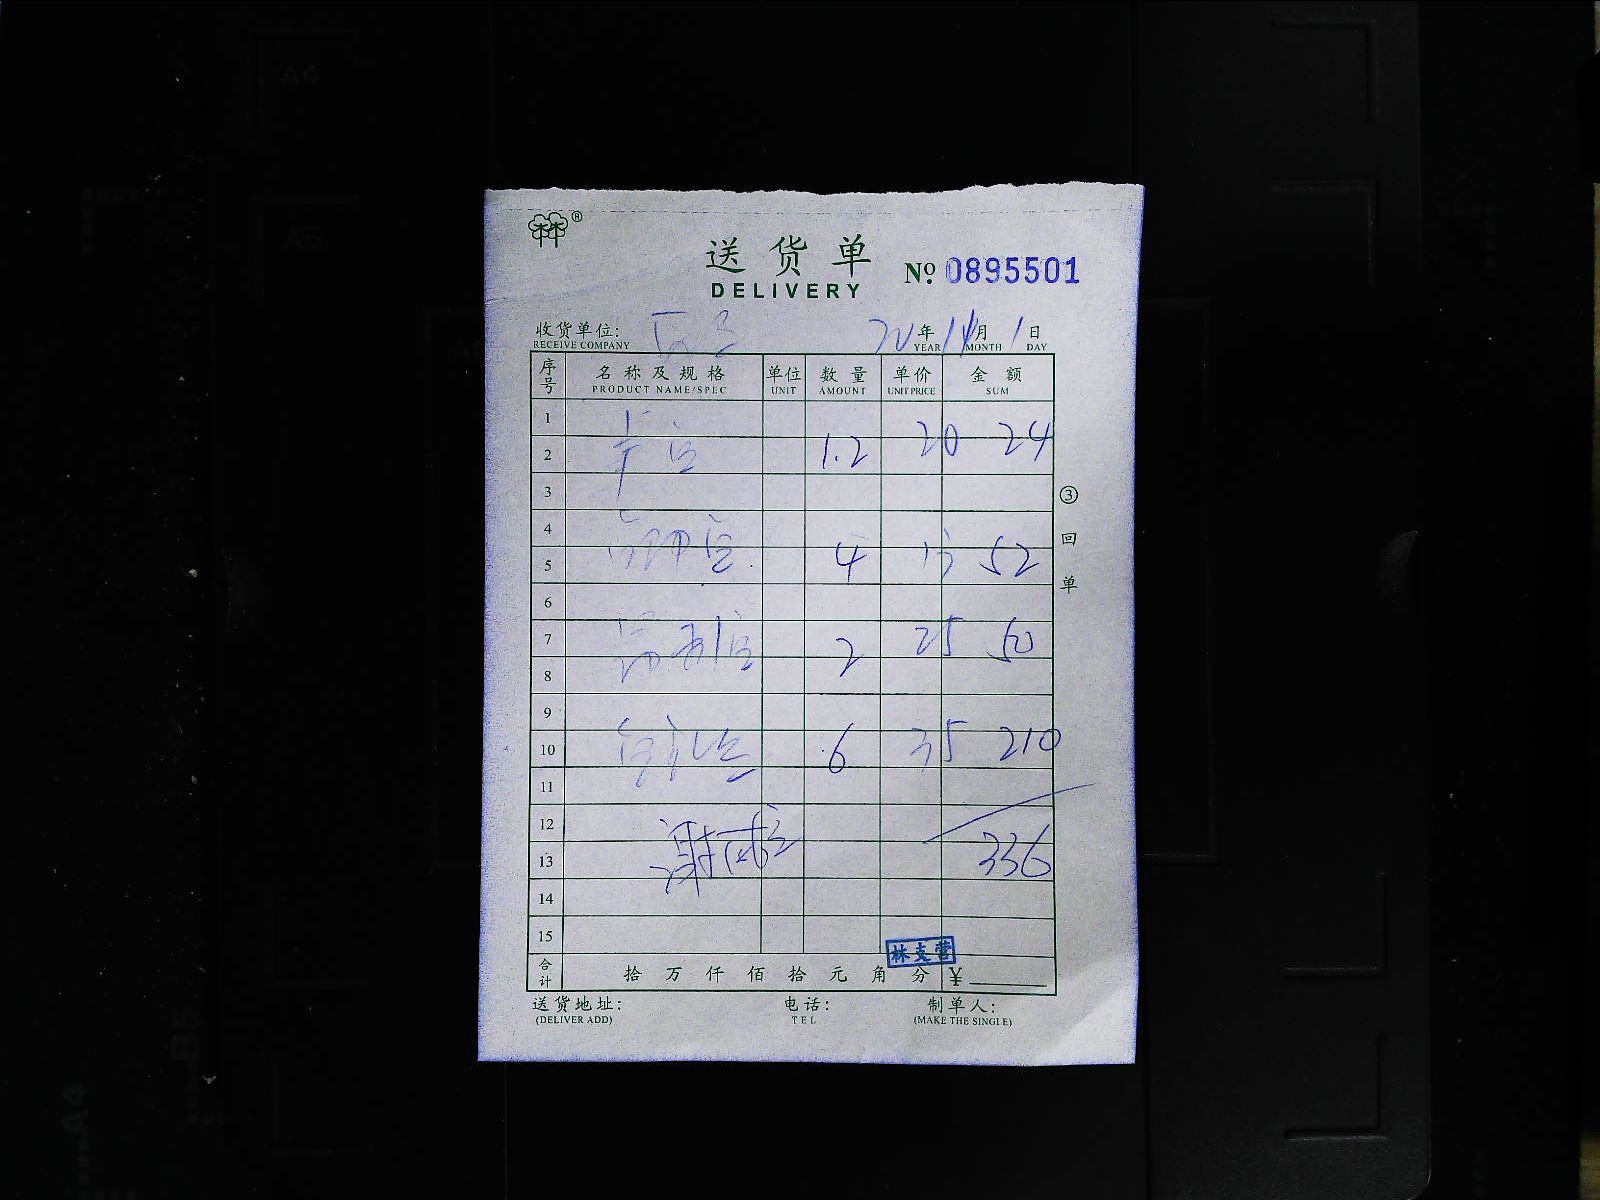 送货单 № 0895501
DELIVERY
收货单位: 年 月 1 日
RECEIVE COMPANY YEAR MONTH DAY
序号 名称及规格 单位 数量 单价 金额
PRODUCT NAME/SPEC UNIT AMOUNT UNIT PRICE SUM
1
2 1.2 20 24
3
4
5 4 13 52
6
7 2 25 50
8
9
10 6 35 210
11
12
13 336
14
15
林支营
合计 拾 万 仟 佰 拾 元 角 分 ¥
送货地址: 电话: 制单人:
(DELIVER ADD) TEL (MAKE THE SINGLE)
③ 回单